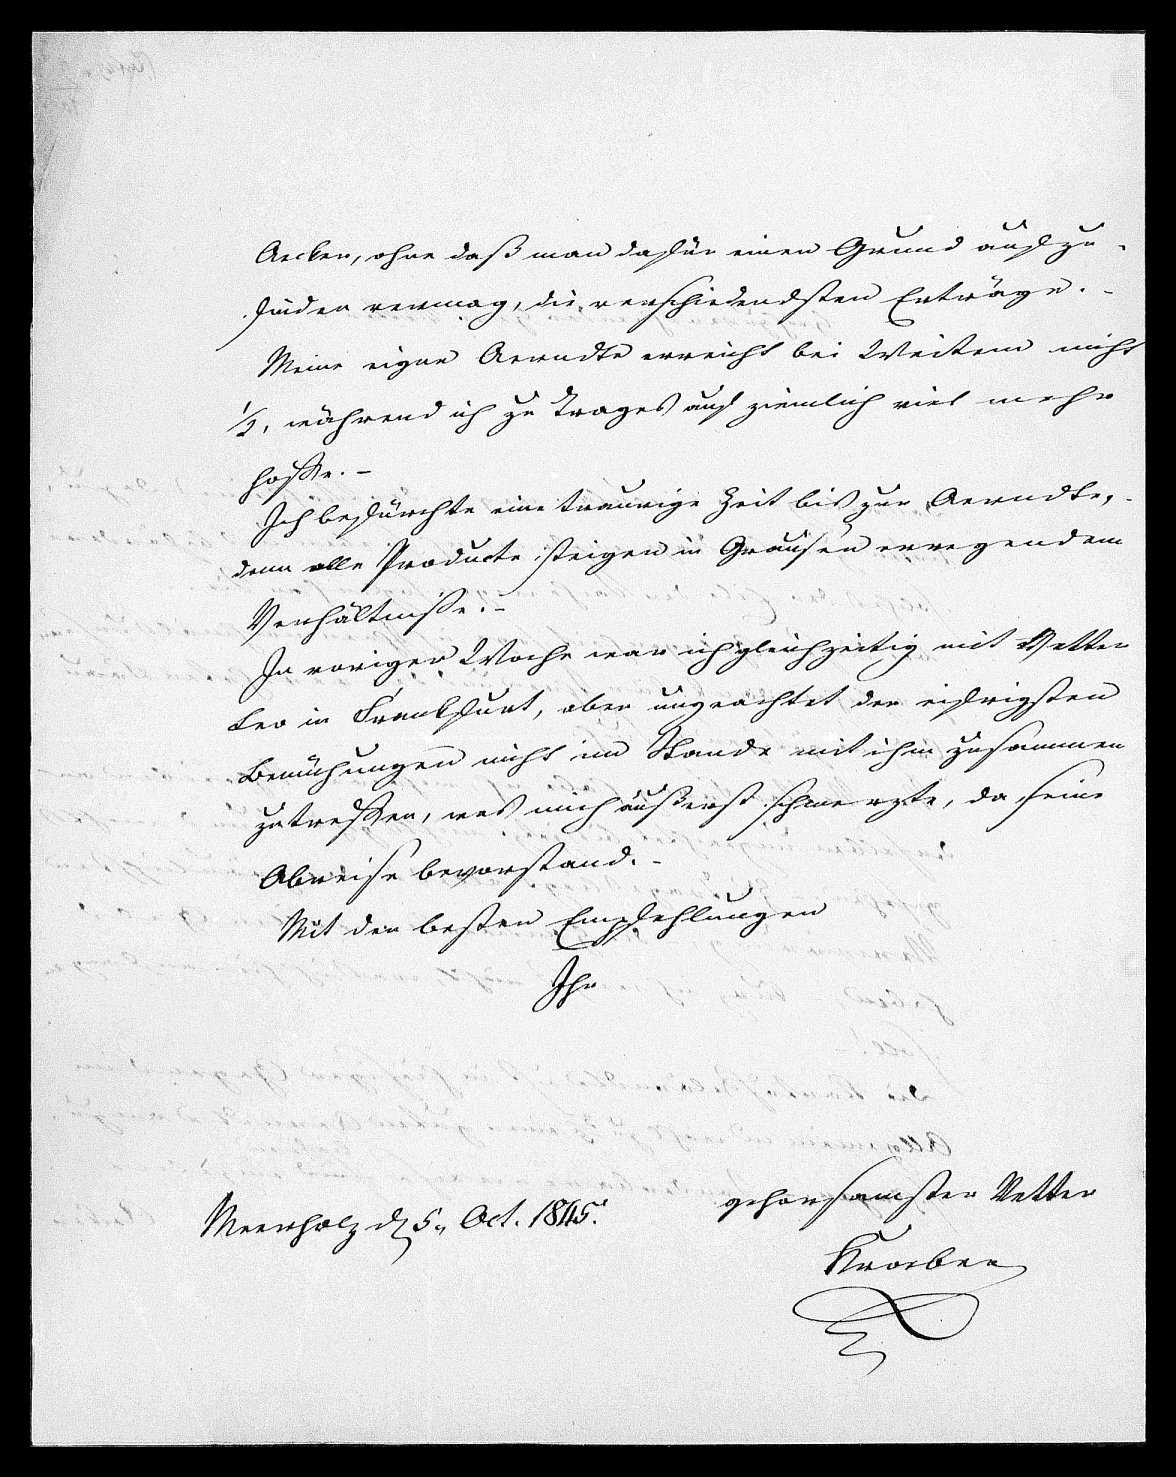 Aecker, ohne daß man dafür einen Grund aufzu-
finden vermag, die verschiedendsten Erträge. -
Meine eigne Aerndte erreicht bei Weitem nicht
1/2, während ich zu Trages auf ziemlich viel mehr
hoffe. -
Ich befürchte eine traurige Zeit bis zur Aerndte, -
denn alle Producte steigen in Grausen erregendem
Verhältnisse. -
In voriger Woche war ich gleichzeitig mit Vetter
Leo in Frankfurt, aber ungeachtet der eifrigsten
Bemühungen nicht im Stande mit ihm zusammen
zutreffen, was mich äußerst schmerzte, da seine
Abreise bevorstand. -
Mit den besten Empfehlungen
Ihr
gehorsamster Vetter
Meerholz d 5. Oct. 1845.
Kroeber